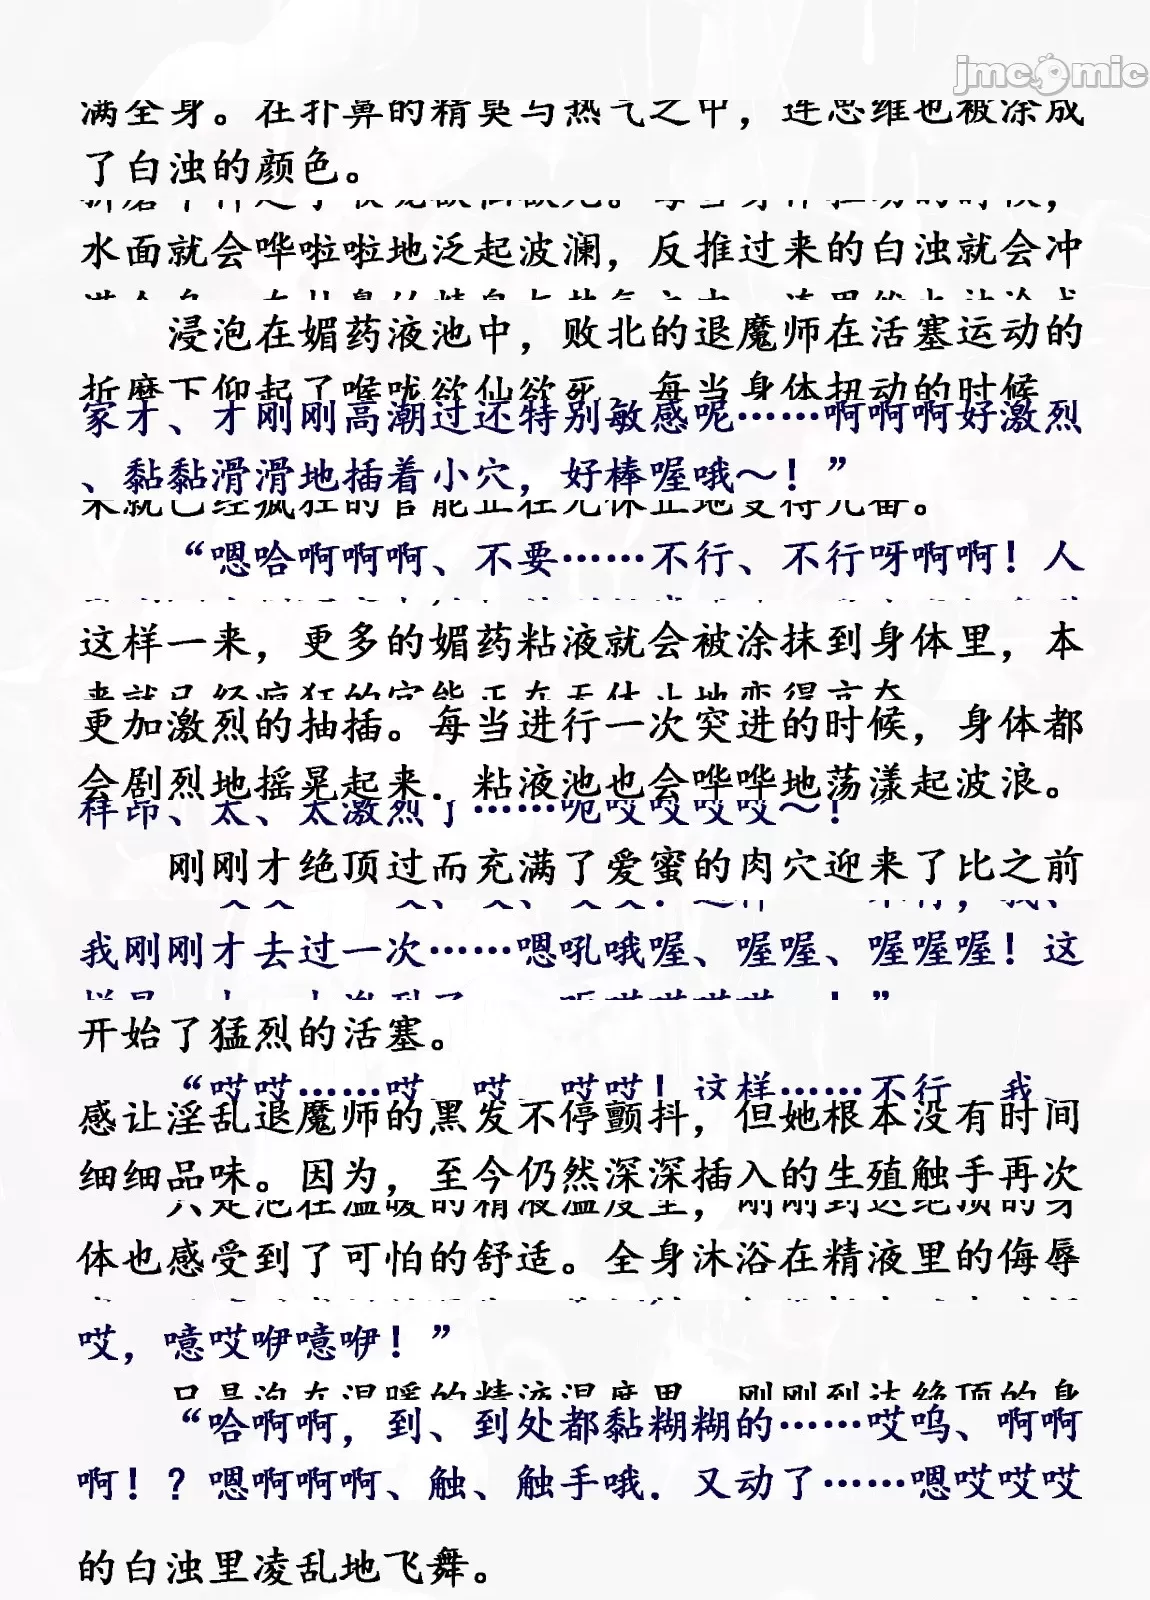 jmcomic
满全身。在扑鼻的精臭与热气之中，连思维也被涂成
了白浊的颜色。
水面就会哗啦啦地泛起波澜，反推过来的白浊就会冲
浸泡在媚药液池中，败北的退魔师在活塞运动的
折磨下仰起了喉咙欲仙欲死。每当身体扭动的时候
家才、才刚刚高潮过还特别敏感呢……啊啊啊好激烈
、黏黏滑滑地插着小穴，好棒喔哦～！”
“嗯哈啊啊啊、不要……不行、不行呀啊啊！人
这样一来，更多的媚药粘液就会被涂抹到身体里，本
更加激烈的抽插。每当进行一次突进的时候，身体都
会剧烈地摇晃起来．粘液池也会哗哗地荡漾起波浪。
样昂、太、太激烈了……呃哎哎哎哎～！”
刚刚才绝顶过而充满了爱蜜的肉穴迎来了比之前
我刚刚才去过一次……嗯吼哦喔、喔喔、喔喔喔！这
开始了猛烈的活塞。
“哎哎……哎、哎、哎哎！这样……不行、我、
感让淫乱退魔师的黑发不停颤抖，但她根本没有时间
细细品味。因为，至今仍然深深插入的生殖触手再次
只是泡在温暖的精液温度里，刚刚到达绝顶的身
体也感受到了可怕的舒适。全身沐浴在精液里的侮辱
哎，噫哎咿噫咿！”
“哈啊啊，到、到处都黏糊糊的……哎呜、啊啊
啊！？嗯啊啊啊、触、触手哦．又动了……嗯哎哎哎
的白浊里凌乱地飞舞。